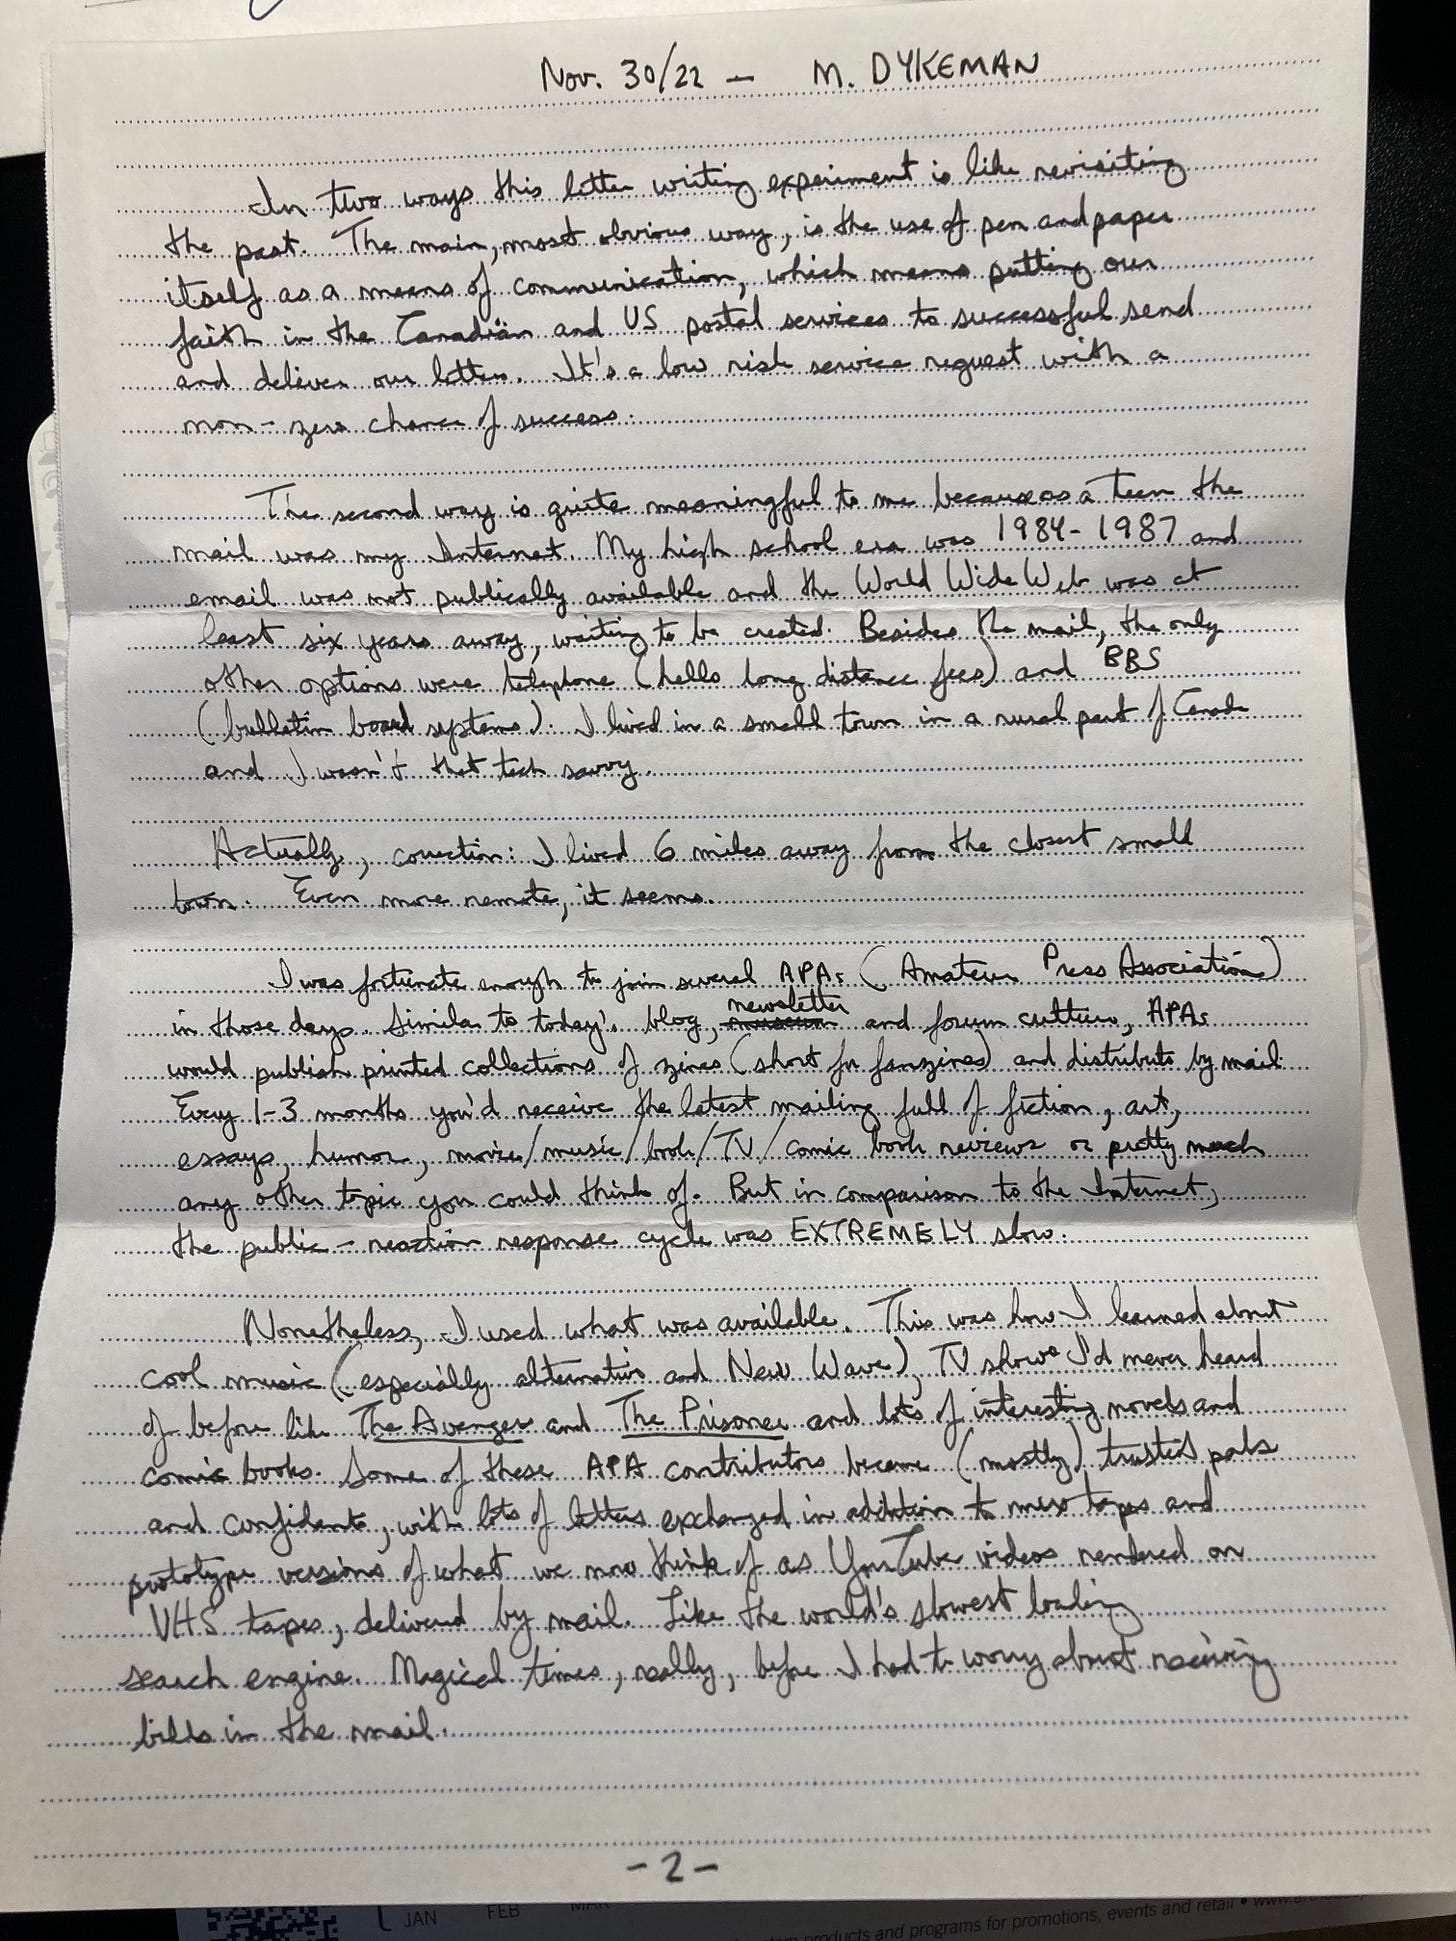 Nov. 30/22 — M. DYKEMAN
In two ways this letter writing experiment is like revisiting
the past. The main, most obvious way, is the use of pen and paper
itself as a means of communication, which means putting our
faith in the Canadian and US postal services to successful send
and deliver our letters. It's a low risk service request with a
non-zero chance of success.
The second way is quite meaningful to me because as a teen the
mail was my Internet. My high school era was 1984-1987 and
email was not publically available and the World Wide Web was at
least six years away, waiting to be created. Besides the mail, the only
other options were telephone (hello long distance fees) and BBS
(bulletin board systems). I lived in a small town in a rural part of Canada
and I wasn't that tech savvy.
Actually, correction: I lived 6 miles away from the closest small
town. Even more remote, it seems.
I was fortunate enough to join several APAs (Amateur Press Association)
in those days. Similar to today's blog, newsletter and forum culture, APAs
would publish printed collections of zines (short for fanzines) and distribute by mail.
Every 1-3 months you'd receive the latest mailing full of fiction, art,
essays, humor, movie/music/book/TV/comic book reviews or pretty much
any other topic you could think of. But in comparison to the Internet,
the public-reaction response cycle was EXTREMELY slow.
Nonetheless, I used what was available. This was how I learned about
cool music (especially alternative and New Wave), TV shows I'd never heard
of before like The Avengers and The Prisoner and lots of interesting novels and
comic books. Some of these APA contributors became (mostly) trusted pals
and confidants, with lots of letters exchanged in addition to mix tapes and
prototype versions of what we now think of as YouTube videos rendered on
VHS tapes, delivered by mail. Like the world's slowest loading
search engine. Magical times, really, before I had to worry about receiving
bills in the mail.
-2-
JAN FEB MAR
products and programs for promotions, events and retail •